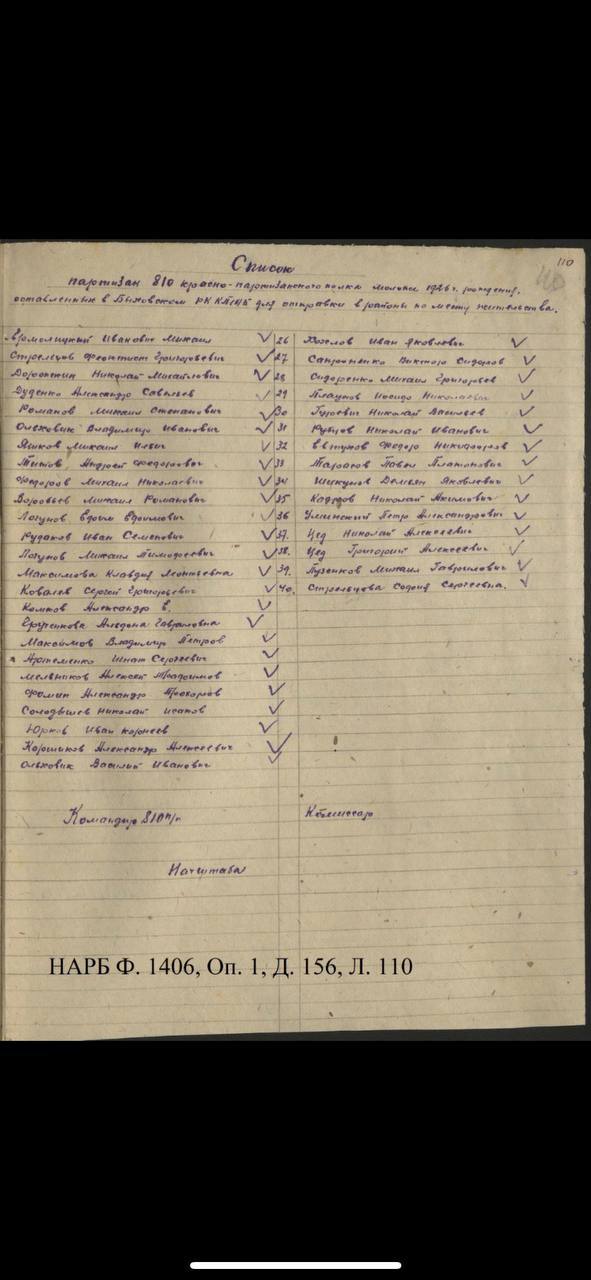 110
Список
партизан 810 красно-партизанского полка моложе 1926 г. рождения,
оставленных в Быховском РК КП(б)Б для отправки в районы по месту жительства.
Иванович Михаил
Стрельцов Феоктист Григорьевич
Дорошкин Николай Михайлович
Дуденко Александр Савельев
Романов Михаил Степанович
Ольховик Владимир Иванович
Языков Михаил Ильич
Титов Андрей Федорович
Федоров Михаил Николаевич
Воробьев Михаил Романович
Логунов Ефим Ефимович
Рудаков Иван Семенович
Логунов Михаил Тимофеевич
Максимова Клавдия Леонтьевна
Ковалев Сергей Григорьевич
Комков Александр Е.
Гавриловна
Максимов Владимир Петров
Артеменко Игнат Сергеевич
Мельников Алексей Трофимов
Фомин Александр Прохоров
Солодышев Николай Исаков
Юрков Иван Корнеев
Коршиков Александр Алексеевич
Ольховик Василий Иванович
26 Козлов Иван Яковлевич
27 Сидоров
28 Сидоренко Михаил Григорьев
29 Николаевич
30 Гуревич Николай Васильев
31 Рубцов Николай Иванович
32 Евтухов Федор Никифоров
33 Тарасов Павел Платонович
34 Шикунов Демьян Яковлевич
35 Кадетов Николай Акимович
36 Улинский Петр Александрович
37. Цед Николай Алексеевич
38. Цед Григорий Алексеевич
39. Пузенков Михаил Гаврилович
40. Стрельцова София Сергеевна.
Командир 810 п/п
Комиссар
Начштаба
НАРБ Ф. 1406, Оп. 1, Д. 156, Л. 110